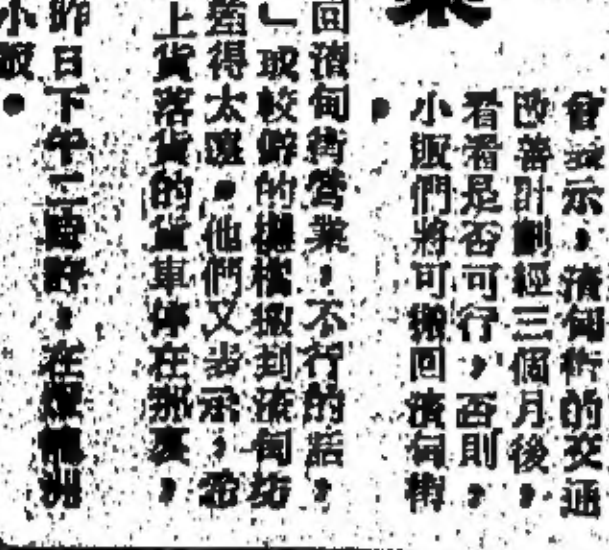 會表示，渣甸街的交通
改善計劃經三個月後，
看看是否可行，否則，
小販們將可搬回渣甸街
。
回渣甸街營業，不行的話，
」取較僻的攤檔搬到渣甸坊
得太 。他們又表示，
上貨落貨的貨車停在那裏，
昨日下午二時許，在
小販。